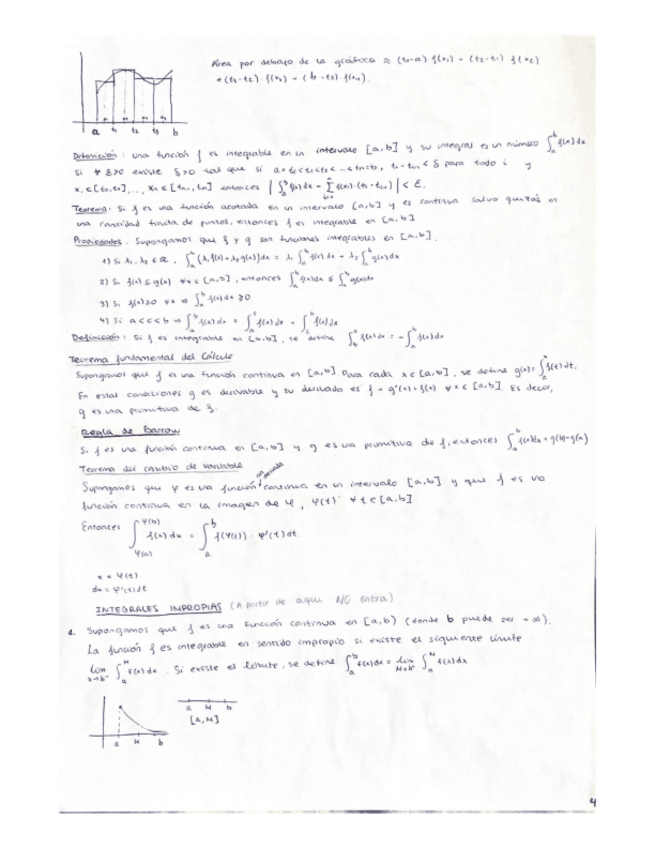 Area por debajo de la gráfica ≈ (t₁-a) f(x₁) + (t₂-t₁) f(x₂)
+ (t₃-t₂) · f(x₃) + (b-t₃) · f(x₄).
a t₁ t₂ t₃ b
Definición: una función f es integrable en un intervalo [a,b] y su integral es un número ∫ₐᵇ f(x)dx
si ∀ ε>0 existe δ>0 tal que si a=t₀<t₁<t₂<...<tₙ=b, tᵢ-tᵢ₋₁<δ para todo i y
x₁∈[t₀,t₁],..., xₙ∈[tₙ₋₁,tₙ] entonces |∫ₐᵇ f(x)dx - Σ f(xᵢ)·(tᵢ-tᵢ₋₁)| < ε.
Teorema: Si f es una función acotada en un intervalo [a,b] y es continua salvo quizás en
una cantidad finita de puntos, entonces f es integrable en [a,b]
Propiedades. Supongamos que f y g son funciones integrables en [a,b].
1) Si λ₁, λ₂ ∈ ℝ, ∫ₐᵇ (λ₁f(x)+λ₂g(x))dx = λ₁ ∫ₐᵇ f(x)dx + λ₂ ∫ₐᵇ g(x)dx
2) Si f(x)≤g(x) ∀x∈[a,b], entonces ∫ₐᵇ f(x)dx ≤ ∫ₐᵇ g(x)dx
3) Si f(x)≥0 ∀x ⇒ ∫ₐᵇ f(x)dx ≥0
4) Si a<c<b ⇒ ∫ₐᵇ f(x)dx = ∫ₐᶜ f(x)dx + ∫꜀ᵇ f(x)dx
Definición: Si f es integrable en [a,b], se define ∫_b^a f(x)dx = -∫ₐᵇ f(x)dx
Teorema fundamental del Cálculo
Supongamos que f es una función continua en [a,b]. Para cada x∈[a,b], se define g(x)=∫ₐˣ f(t)dt.
En estas condiciones g es derivable y su derivada es f → g'(x)=f(x) ∀x∈[a,b]. Es decir,
g es una primitiva de f.
Regla de Barrow
Si f es una función continua en [a,b] y g es una primitiva de f, entonces ∫ₐᵇ f(x)dx = g(b)-g(a)
Teorema del cambio de variable
Supongamos que φ es una función continua en un intervalo [a,b] y que f es una
función continua en la imagen de φ, φ(t) ∀t∈[a,b]
Entonces ∫_{φ(a)}^{φ(b)} f(x)dx = ∫ₐᵇ f(φ(t)) · φ'(t)dt
x = φ(t)
dx = φ'(t)dt
INTEGRALES IMPROPIAS (A partir de aquí NO entra)
1. Supongamos que f es una función continua en [a,b) (donde b puede ser +∞).
La función f es integrable en sentido impropio si existe el siguiente límite
lim ∫ₐᴹ f(x)dx. Si existe el límite, se define ∫ₐᵇ f(x)dx = lim ∫ₐᴹ f(x)dx
a M b
a M b
[a,M]
4